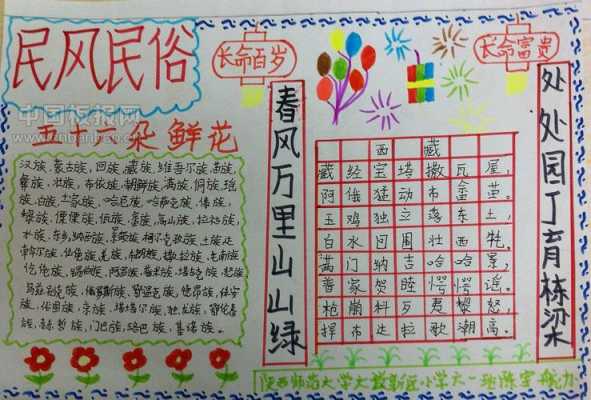 民风民俗
中国板报网
五十六朵鲜花
汉族、蒙古族、回族、藏族、维吾尔族、苗族、
彝族、壮族、布依族、朝鲜族、满族、侗族、瑶
族、白族、土家族、哈尼族、哈萨克族、傣族、
黎族、傈僳族、佤族、畲族、高山族、拉祜族、
水族、东乡、纳西族、景颇族、柯尔克孜族、土族、达
斡尔族、仫佬族、羌族、布朗族、撒拉族、毛南族
仡佬族、锡伯族、阿昌族、普米族、塔吉克族、怒族
乌孜别克族、俄罗斯族、鄂温克族、德昂族、保安
族、裕固族、京族、塔塔尔族、独龙族、鄂伦春
族、赫哲族、门巴族、珞巴族、基诺族。
长命百岁
春风万里山山绿
长命富贵
西藏
藏经宝塔撒瓦屋，
阿俄猛动布畲苗。
玉鸡独立落东土，
白水回围壮西牦。
满门纳吉哈哈景，
普家贺
枪崩料歹夷黎怒，
拜布达拉歌潮高。
处处园丁育栋梁
陕西师范大学大校新区小学六一班陈宇航力